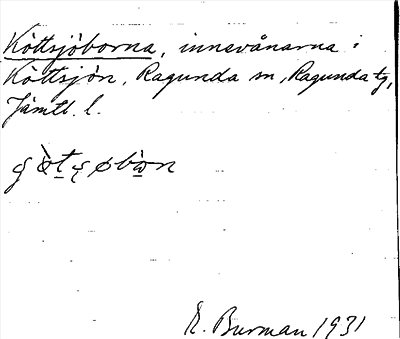 Köttsjöborna, innevånarna i
Köttsjön, Ragunda sn, Ragunda tg,
Jämtl. l.
R. Burman 1931